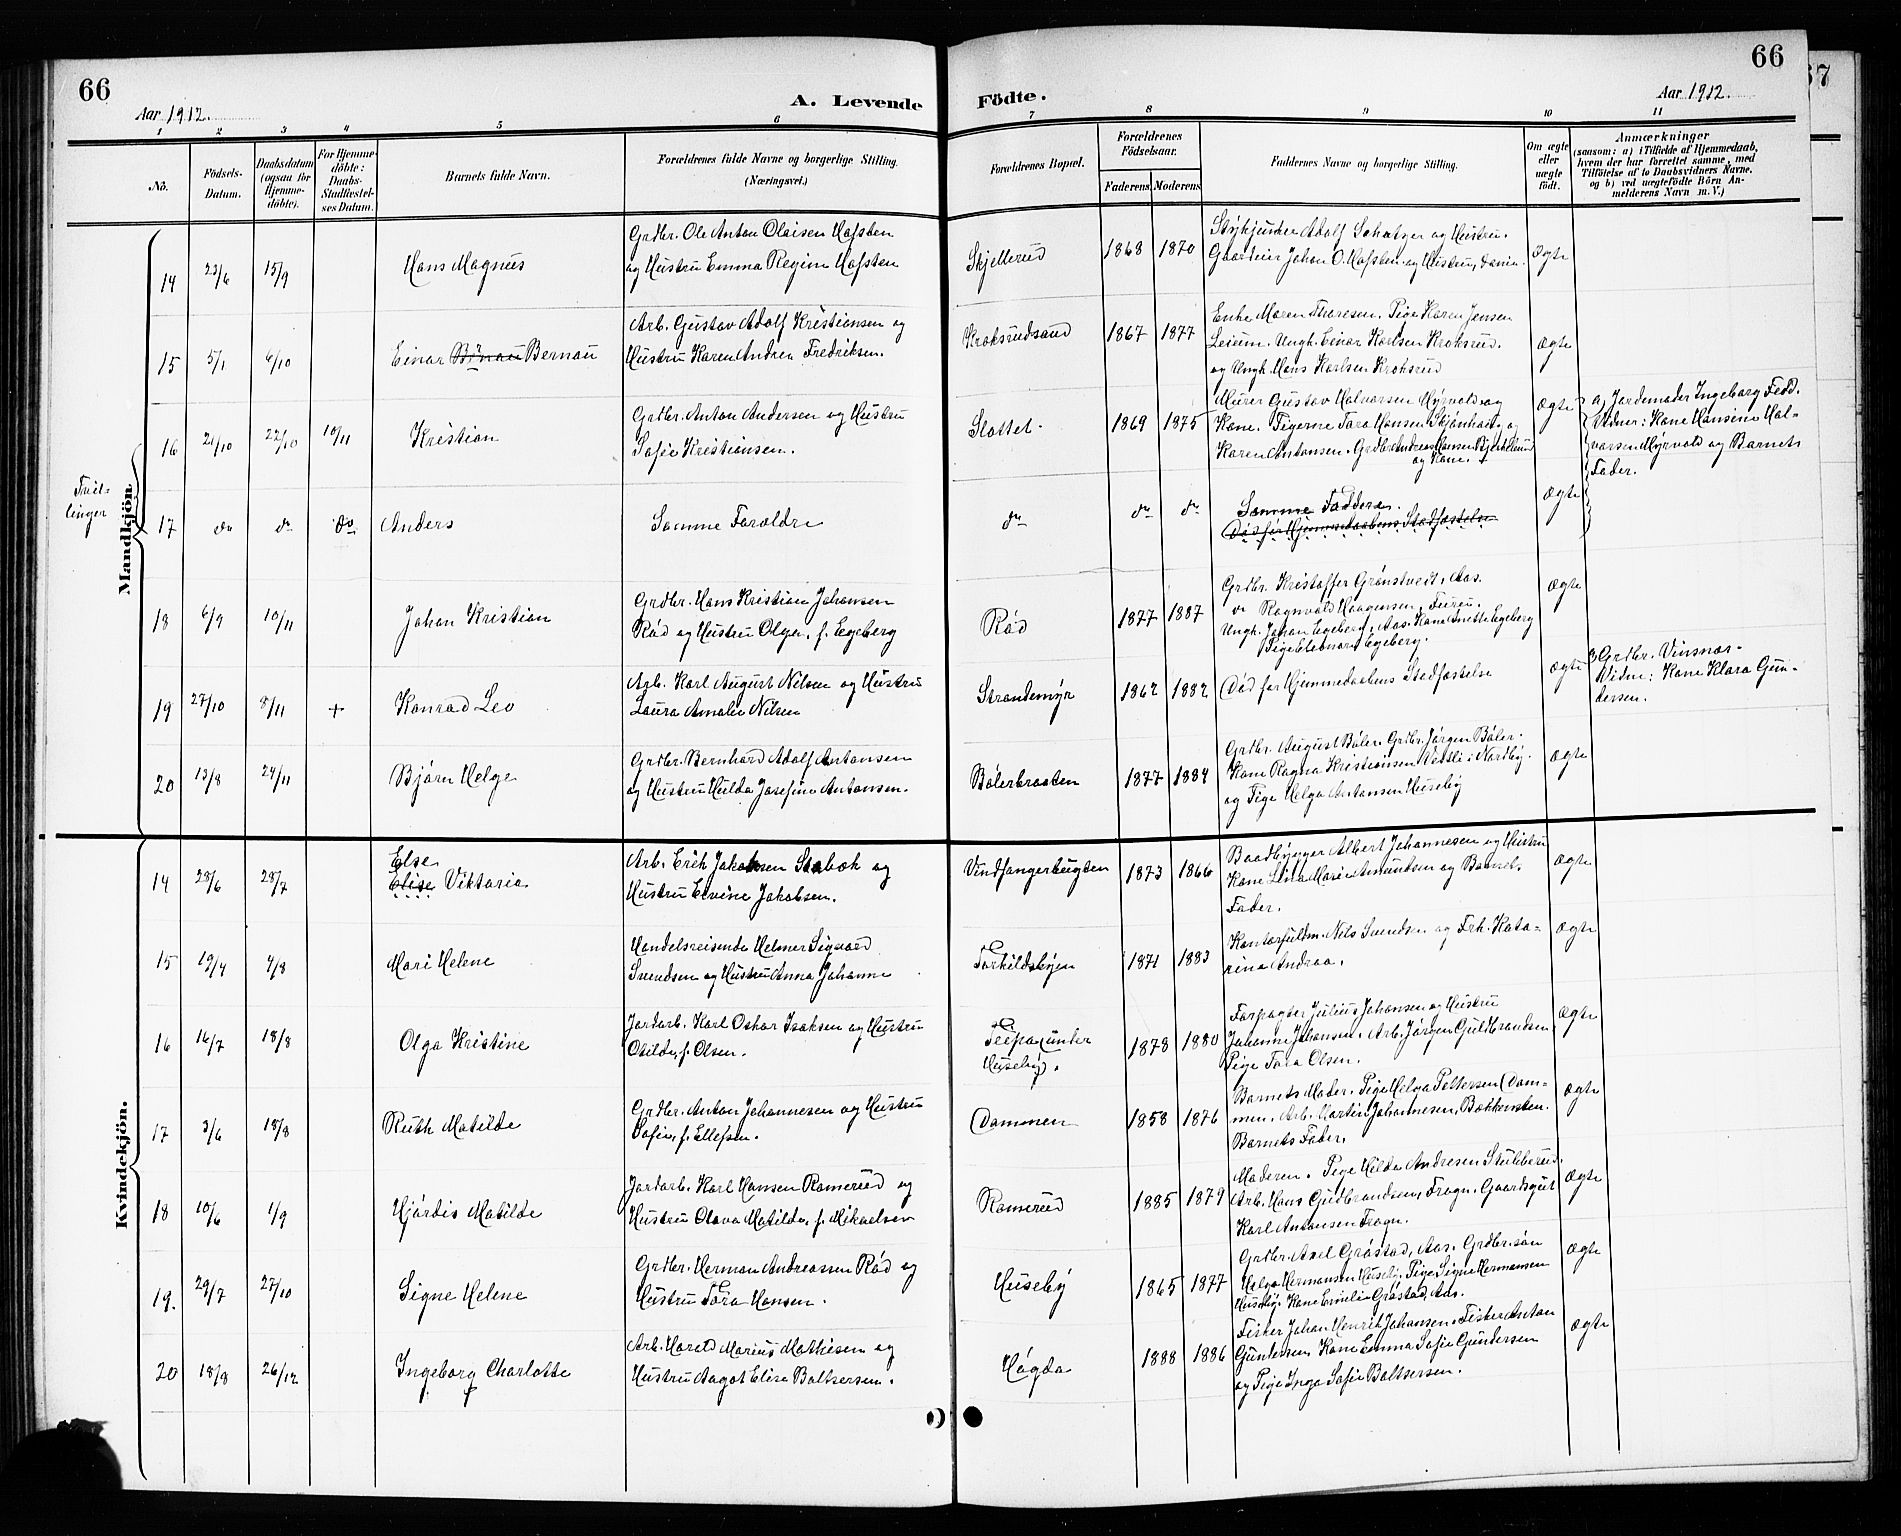 66
Aar 1912.
A. Levende Födte.
66
Aar 1912.
1 2 3 4 5 6 7 8 9 10 11
No.
Födsels-
Datum.
Daabsdatum
(ogsaa for
Hjemme-
döbte).
For Hjemme-
döbte:
Daabs-
Stadfæstel-
ses Datum.
Barnets fulde Navn.
Forældrenes fulde Navne og borgerlige Stilling.
(Næringsvei.)
Forældrenes Bopæl.
Forældrenes
Födselsaar.
Faderens. Moderens.
Faddernes Navne og borgerlige Stilling.
Om ægte
eller
uægte
födt.
Anmærkninger
(saasom: a) i Tilfælde af Hjemmedaab,
hvem der har forrettet samme, med
Tilföielse af to Daabsvidners Navne,
og b) ved uægtefödte Börn An-
melderens Navn m. V.)
Mandkjön.
14 23/6 15/9 Hans Magnus
Grdbr. Ole Anton Olaisen Hafsten
og Hustru Emma Regine Hafsten
Skjellerud 1868 1870
og Hustru.
Gaardeier Johan O. Hafsten og Hustru,
Ægte
15 5/1 6/10 Einar Bernau
Arb. Gustav Adolf Kristiansen og
Hustru Karen Andrea Fredriksen.
Kroksrudsand 1867 1877
Enke Maren Thoresen. Pige Karen Jensen
Ungh. Einar Karlsen Kroksrud.
og Ungh. Hans Karlsen Kroksrud
Ægte
Tvil-
linger
16 21/10 22/10 10/11 Kristian
Grdbr. Anton Andersen og Hustru
Sofie Kristiansen.
Slottet. 1869 1875
Murer Gustav Halvorsen Myrvold og
Kone. Pigerne Tora Hansen Skjønhaug og
Karen Antonsen. Grdbr. Andreas Hansen
og Kone.
Ægte
a, Jordemoder Ingeborg Fedd.
Vidner: Kone Hansine Hal-
vorsen Myrvold og Barnets
Fader.
17 do do do Anders
Samme Forældre
do do do
Samme Faddere.
Død før Hjemmedaabens Stadfæstelse
Ægte
18 6/9 10/11 Johan Kristian
Grdbr. Hans Kristian Johansen
Rød og Hustru Olga, f. Egeberg
Rød 1877 1887
Grdbr. Kristoffer Grønstvedt, Aas.
do Ragnvald Haagensen,
Ungh. Johan Egeberg, Aas. Kone Anette Egeberg
Pige Eleonore Egeberg.
Ægte
19 27/10 8/11 + Konrad Leo
Arb. Karl August Nilsen og Hustru
Laura Amalie Nilsen
Strandemyr 1862 1882
Død før Hjemmedaabens Stadfæstelse
Ægte
Grdbr. Vinsnæs
Vidne: Kone Klara Gun-
dersen.
20 13/8 24/11 Bjørn Helge
Grdbr. Bernhard Adolf Antonsen
og Hustru Hulda Josefine Antonsen.
Bølerbraaten 1877 1884
Grdbr. August Bøler. Grdbr. Jørgen Bøler.
Kone Ragna Kristiansen Vestli i Nordby.
og Pige Helga Antonsen Huseby
Ægte
Kvindekjön.
14 28/6 28/7
Else
Elise Viktoria
Arb. Erik Jakobsen Stabæk og
Hustru Elvine Jakobsen.
Vindfangerbugten 1873 1866
Baadbygger Albert Johannesen og Hustru
Kone Lina Marie Amundsen og Barnets
Fader.
Ægte
15 19/4 4/8 Mari Helene
Handelsreisende Helmer Sigvard
Svendsen og Hustru Anna Johanne
Torkildsbyen 1871 1883
Kontorfuldm. Nils Svendsen og Frk. Kata-
rina Andraa.
Ægte
16 16/7 18/8 Olga Kristine
Jordarb. Karl Oskar Isaksen og Hustru
Otilde, f. Olsen.
Teppa (under
Huseby). 1878 1880
Forpagter Julius Johansen og Hustru
Johanne Johansen. Arb. Jørgen Guldbrandsen
Pige Tora Olsen.
Ægte
17 3/6 18/8 Ruth Matilde
Grdbr. Anton Johannesen og Hustru
Sofie, f. Ellefsen.
Dammen 1858 1876
Barnets Moder. Pige Helga Pettersen (Dam-
men. Arb. Martin Johannesen, Bækkensten.
Barnets Fader.
Ægte
18 10/6 1/9 Hjørdis Matilde
Jordarb. Karl Hansen Ramerud og
Hustru Olava Matilde, f. Mikaelsen
Ramerud 1885 1879
Moderen. Pige Hilda Andresen Skuleberud.
Arb. Hans Guldbrandsen, Frogn. Gaardsgut
Karl Antonsen Frogn.
Ægte
19. 29/7 27/10 Signe Helene
Grdbr. Herman Andreassen Rød og
Hustru Tora Hansen.
Huseby 1865 1877
Grdbr. Axel Grøstad, Aas. Grdbr.søn
Helge Hermansen Huseby. Pige Signe Hermansen
Huseby. Kone Emelie Grøstad, Aas.
Ægte
20 18/8 26/12 Ingeborg Charlotte
Arb. Harald Marius Mathisen og
Hustru Aagot Elise Baltsersen.
Høgda 1888 1886
Fisker Johan Henrik Johansen. Fisker Anton
Gundersen, Kone Emma Sofie Gundersen
og Pige Inga Sofie Baltsersen.
Ægte